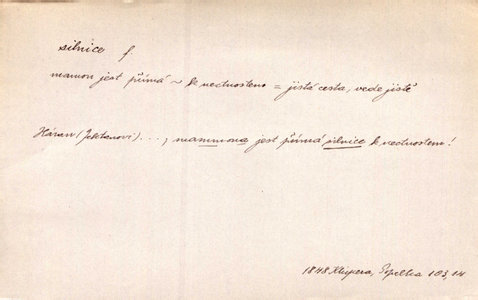 silnice f
mamon jest přímá ~ k nectnostem = jistá cesta, vede jistě
Háran (Jektanovi) ..., mammona jest přímá silnice k nectnostem!
1848 Klicpera, Popelka 103,14